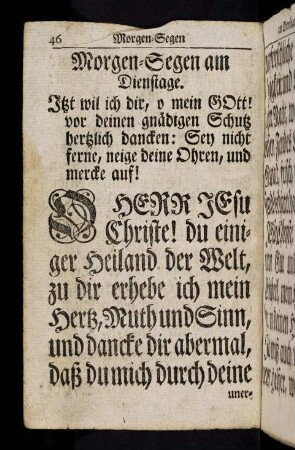 46 Morgen-Segen
Morgen-Segen am
Dienstage.
Itzt wil ich dir, o mein GOtt!
vor deinen gnädigen Schutz
hertzlich dancken: Sey nicht
ferne, neige deine Ohren, und
mercke auf!
O HERR JEsu
Christe! du eini-
ger Heiland der Welt,
zu dir erhebe ich mein
Hertz, Muth und Sinn,
und dancke dir abermal,
daß du mich durch deine
uner-